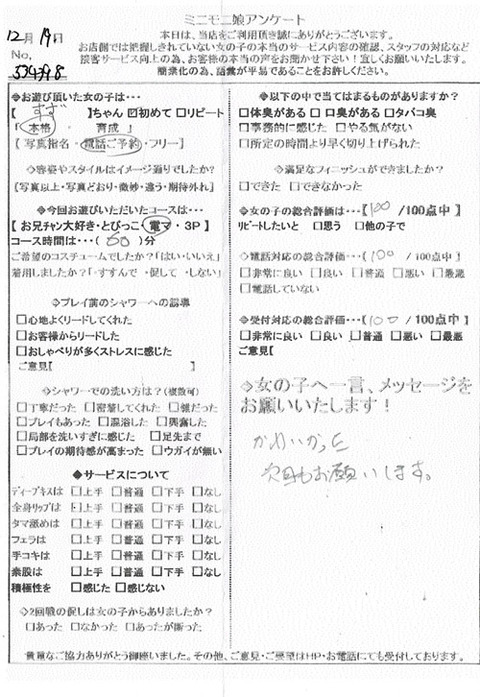 ミニモニ娘アンケート
12月19日
No.
本日は、当店をご利用頂き誠にありがとうございます。
お店側では把握しきれていない女の子の本当のサービス内容の確認、スタッフの対応など
接客サービス向上の為、お客様の本当の声をお聞かせ下さい！宜しくお願いいたします。
簡素化の為、語彙が平易であることをお許しください。
◇お遊び頂いた女の子は･･･
【 すず 】ちゃん ☑初めて □リピート
「 本格 育成 」
【 写真指名・電話ご予約・フリー】
◇容姿やスタイルはイメージ通りでしたか？
【写真以上・写真どおり・微妙・違う・期待外れ】
◇今回お遊びいただいたコースは･･･
【 お兄チャン大好き・とびっこ・電マ・3P
コース時間は･･･( 60 )分
ご希望のコスチュームでしたか？「はい・いいえ」
着用しましたか？「すすんで ・促して ・しない」
◇プレイ前のシャワーへの誘導
□心地よくリードしてくれた
□お客様からリードした
□おしゃべりが多くストレスに感じた
ご意見【 】
◇シャワーでの洗い方は？(複数可)
□丁寧だった □密着してくれた □雑だった
□プレイもあった □混浴した □興奮した
□局部を洗いすぎに感じた □足先まで
□プレイの期待感が高まった □ウガイが無い
◆サービスについて
ディープキスは □上手 □普通 □下手 □なし
全身リップは □上手 □普通 □下手 □なし
タマ舐めは □上手 □普通 □下手 □なし
フェラは □上手 □普通 □下手 □なし
手コキは □上手 □普通 □下手 □なし
素股は □上手 □普通 □下手 □なし
積極性を □感じた □感じない
◇2回戦の促しは女の子からありましたか？
□あった □なかった □あったが断った
◇以下の中で当てはまるものがありますか？
□体臭がある □口臭がある □タバコ臭
□事務的に感じた □やる気がない
□所定の時間より早く切り上げられた
◇満足なフィニッシュができましたか？
□できた □できなかった
◇女の子の総合評価は･･･【100 /100点中】
リピートしたいと □思う □他の子で
◇電話対応の総合評価･･･(100 /100点中)
□非常に良い □良い □普通 □悪い □最悪
□電話していない
◇受付対応の総合評価･･･(100 /100点中)
□非常に良い □良い □普通 □悪い □最悪
ご意見【
◇女の子へ一言、メッセージを
お願いいたします！
かわいかった
次回もお願いします。
貴重なご協力ありがとう御座いました。その他、ご意見・ご要望はHP・お電話にても受付しております。